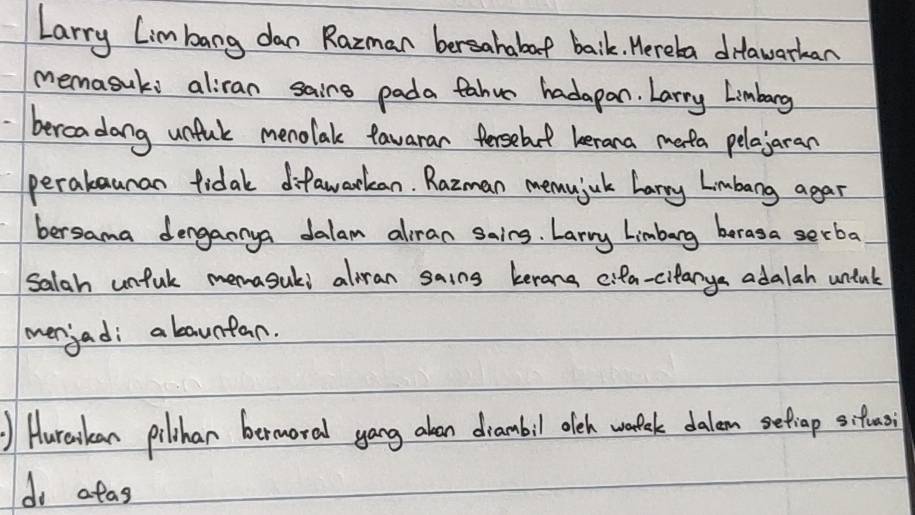 Larry Limbang dan Razman bersahabat baik. Mereka ditawarkan
memasuki aliran sains pada tahun hadapan. Larry Limbang
bercadang untuk menolak tawaran tersebut kerana mata pelajaran
perakaunan tidak ditawarkan. Razman memujuk Larry Limbang agar
bersama dengannya dalam aliran sains. Larry Limbang berasa serba
salah untuk memasuki aliran sains kerana cita-citanya adalah untuk
menjadi akauntan.
.) Huraikan pilihan bermoral yang akan diambil oleh watak dalam setiap situasi
di atas